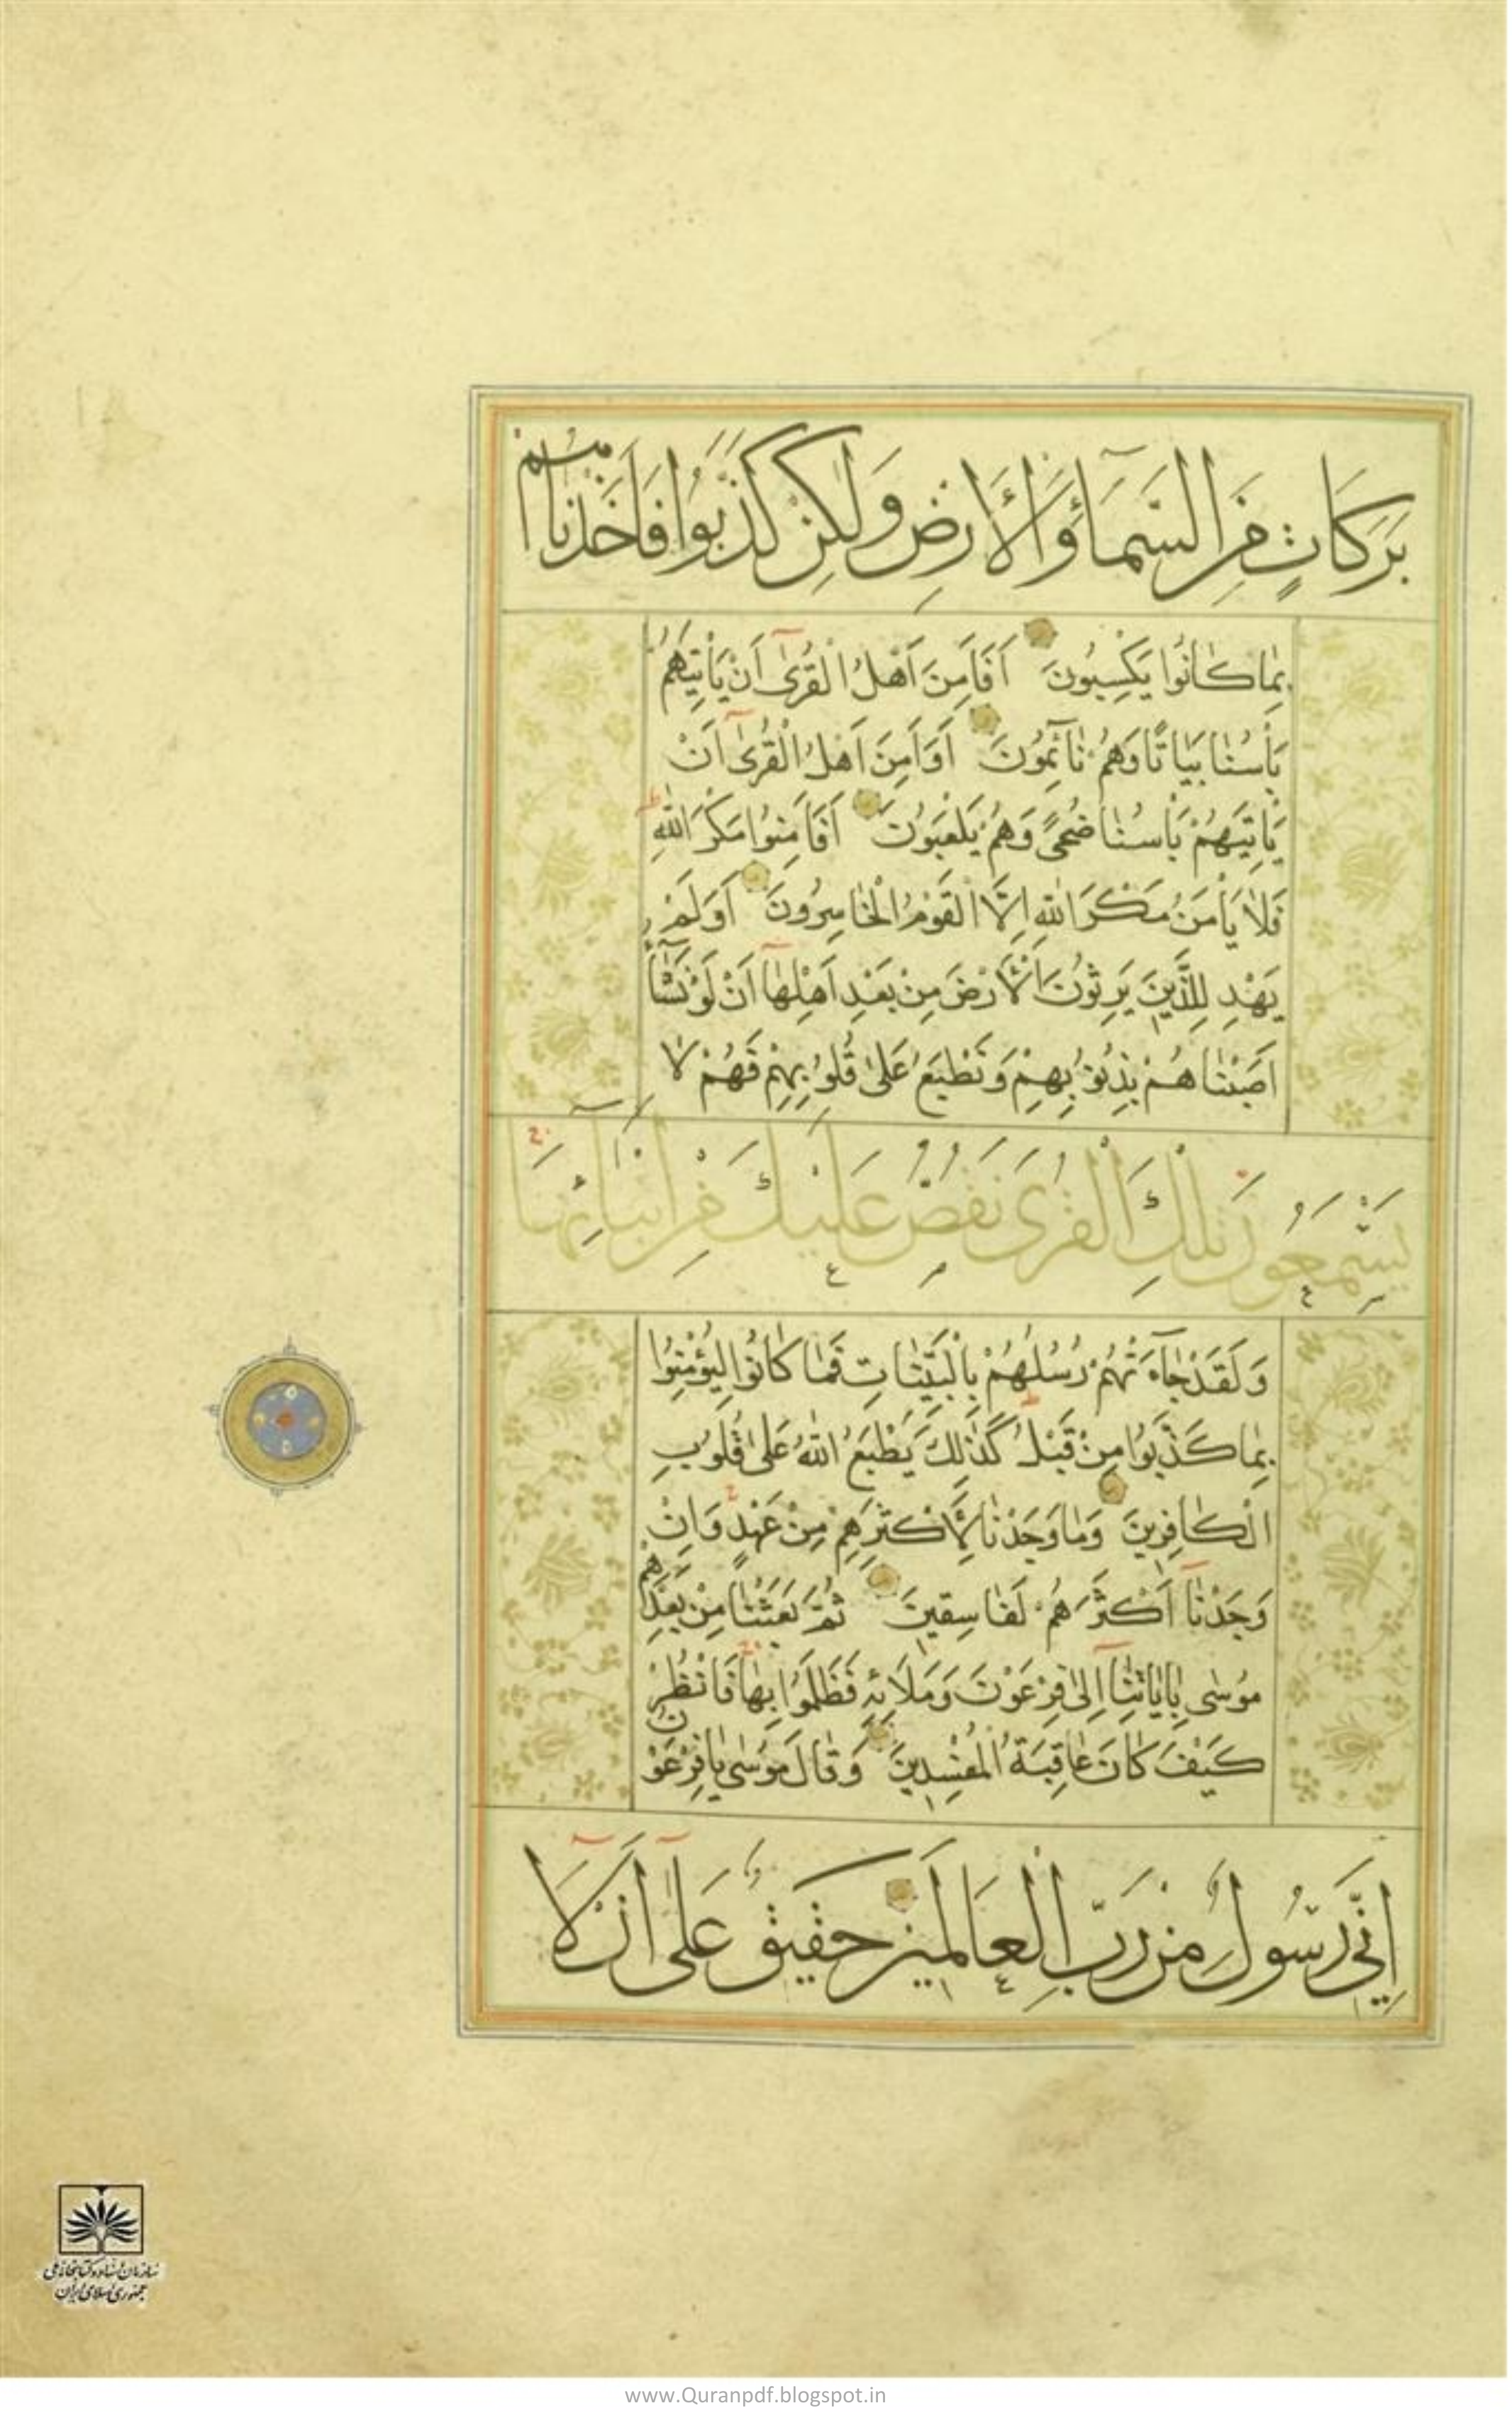 بَرَكَاتٍ مِنَ السَّمَآءِ وَالْأَرْضِ وَلٰكِنْ كَذَّبُوا فَاَخَذْنَاهُمْ
بِمٰا كٰانُوا يَكْسِبُونَ اَفَاَمِنَ اَهْلُ الْقُرىٰٓ اَنْ يَأْتِيَهُمْ
بَأْسُنٰا بَيٰاتًا وَهُمْ نٰآئِمُونَ اَوَاَمِنَ اَهْلُ الْقُرىٰٓ اَنْ
يَأْتِيَهُمْ بَأْسُنٰا ضُحًى وَهُمْ يَلْعَبُونَ اَفَاَمِنُوا مَكْرَ اللّٰهِ
فَلاٰ يَأْمَنُ مَكْرَ اللّٰهِ اِلَّا الْقَوْمُ الْخٰاسِرُونَ اَوَلَمْ
يَهْدِ لِلَّذِينَ يَرِثُونَ الْأَرْضَ مِنْ بَعْدِ اَهْلِهٰآ اَنْ لَوْ نَشٰٓاءُ
اَصَبْنٰاهُمْ بِذُنُوبِهِمْ وَنَطْبَعُ عَلىٰ قُلُوبِهِمْ فَهُمْ لاٰ
يَسْمَعُونَ تِلْكَ الْقُرىٰ نَقُصُّ عَلَيْكَ مِنْ اَنْبٰآئِهٰا
وَلَقَدْ جٰآءَتْهُمْ رُسُلُهُمْ بِالْبَيِّنٰاتِ فَمٰا كٰانُوا لِيُؤْمِنُوا
بِمٰا كَذَّبُوا مِنْ قَبْلُ كَذٰلِكَ يَطْبَعُ اللّٰهُ عَلىٰ قُلُوبِ
الْكٰافِرِينَ وَمٰا وَجَدْنٰا لِأَكْثَرِهِمْ مِنْ عَهْدٍ وَاِنْ
وَجَدْنٰآ اَكْثَرَهُمْ لَفٰاسِقِينَ ثُمَّ بَعَثْنٰا مِنْ بَعْدِهِمْ
مُوسىٰ بِاٰيٰاتِنٰٓا اِلىٰ فِرْعَوْنَ وَمَلَائِهِ فَظَلَمُوا بِهٰا فَانْظُرْ
كَيْفَ كٰانَ عٰاقِبَةُ الْمُفْسِدِينَ وَقٰالَ مُوسىٰ يٰا فِرْعَوْنُ
اِنِّي رَسُولٌ مِنْ رَبِّ الْعَالَمِينَ حَقِيقٌ عَلىٰٓ اَنْ لٰآ
سازمان اسناد و کتابخانه ملی
جمهوری اسلامی ایران
www.Quranpdf.blogspot.in